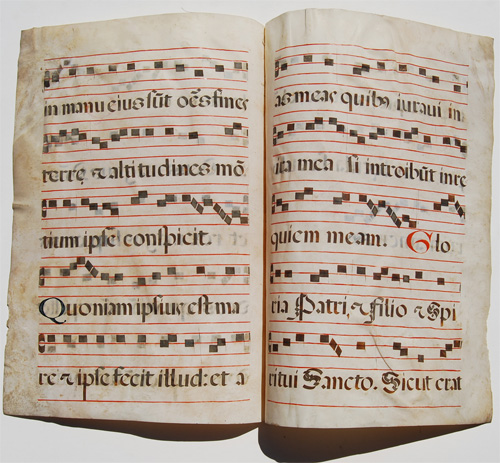 in manu eius sūt oēs fines
terrę & altitudines mō
tium ipse conspicit.
Quoniam ipsius est ma
re & ipse fecit illud: et a
as meas quibꝰ iuraui in
ita mea si introibūt in re
quiem meam. Glo
ria Patri, & filio & spi
ritui Sancto. Sicut erat